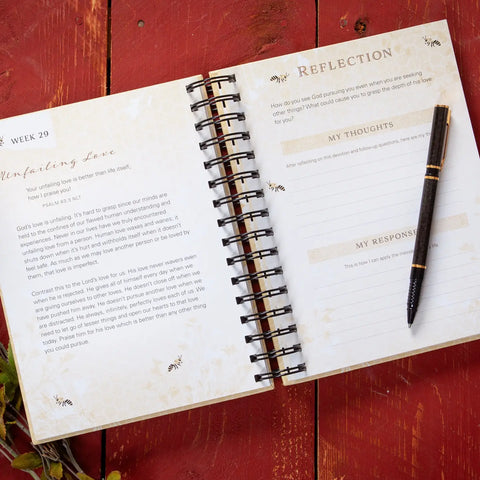 WEEK 29
Unfailing Love
Your unfailing love is better than life itself,
how I praise you!
PSALM 63:3 NLT
God's love is unfailing. It's hard to grasp since our minds are
held to the confines of our flawed human understanding and
experiences. Never in our lives have we truly encountered
unfailing love from a person. Human love waxes and wanes; it
shuts down when it's hurt and withholds itself when it doesn't
feel safe. As much as we may love another person or be loved by
them, that love is imperfect.
Contrast this to the Lord's love for us: His love never wavers even
when he is rejected. He gives all of himself every day when we
are giving ourselves to other loves. He doesn't close off when we
have pushed him away. He doesn't pursue another love when we
are distracted. He always, infinitely, perfectly loves each of us. We
need to let go of lesser things and open our hearts to that love
today. Praise him for his love which is better than any other thing
you could pursue.
REFLECTION
How do you see God pursuing you even when you are seeking
other things? What could cause you to grasp the depth of his love
for you?
MY THOUGHTS
After reflecting on this devotion and follow-up questions, here are my
MY RESPONSE
This is how I can apply the